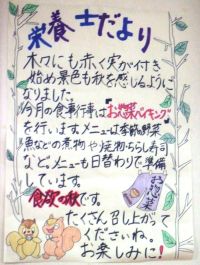 栄養士だより
木々にも赤く実が付き
始め景色も秋を感じるように
なりました。
今月の食事行事は「お惣菜バイキング」
を行います。メニューは季節の野菜
魚などの煮物や焼物・ちらし寿司
など。メニューも日替わりで準備
しています。
食欲の秋です。
たくさん召し上がって
くださいね。
お楽しみに!